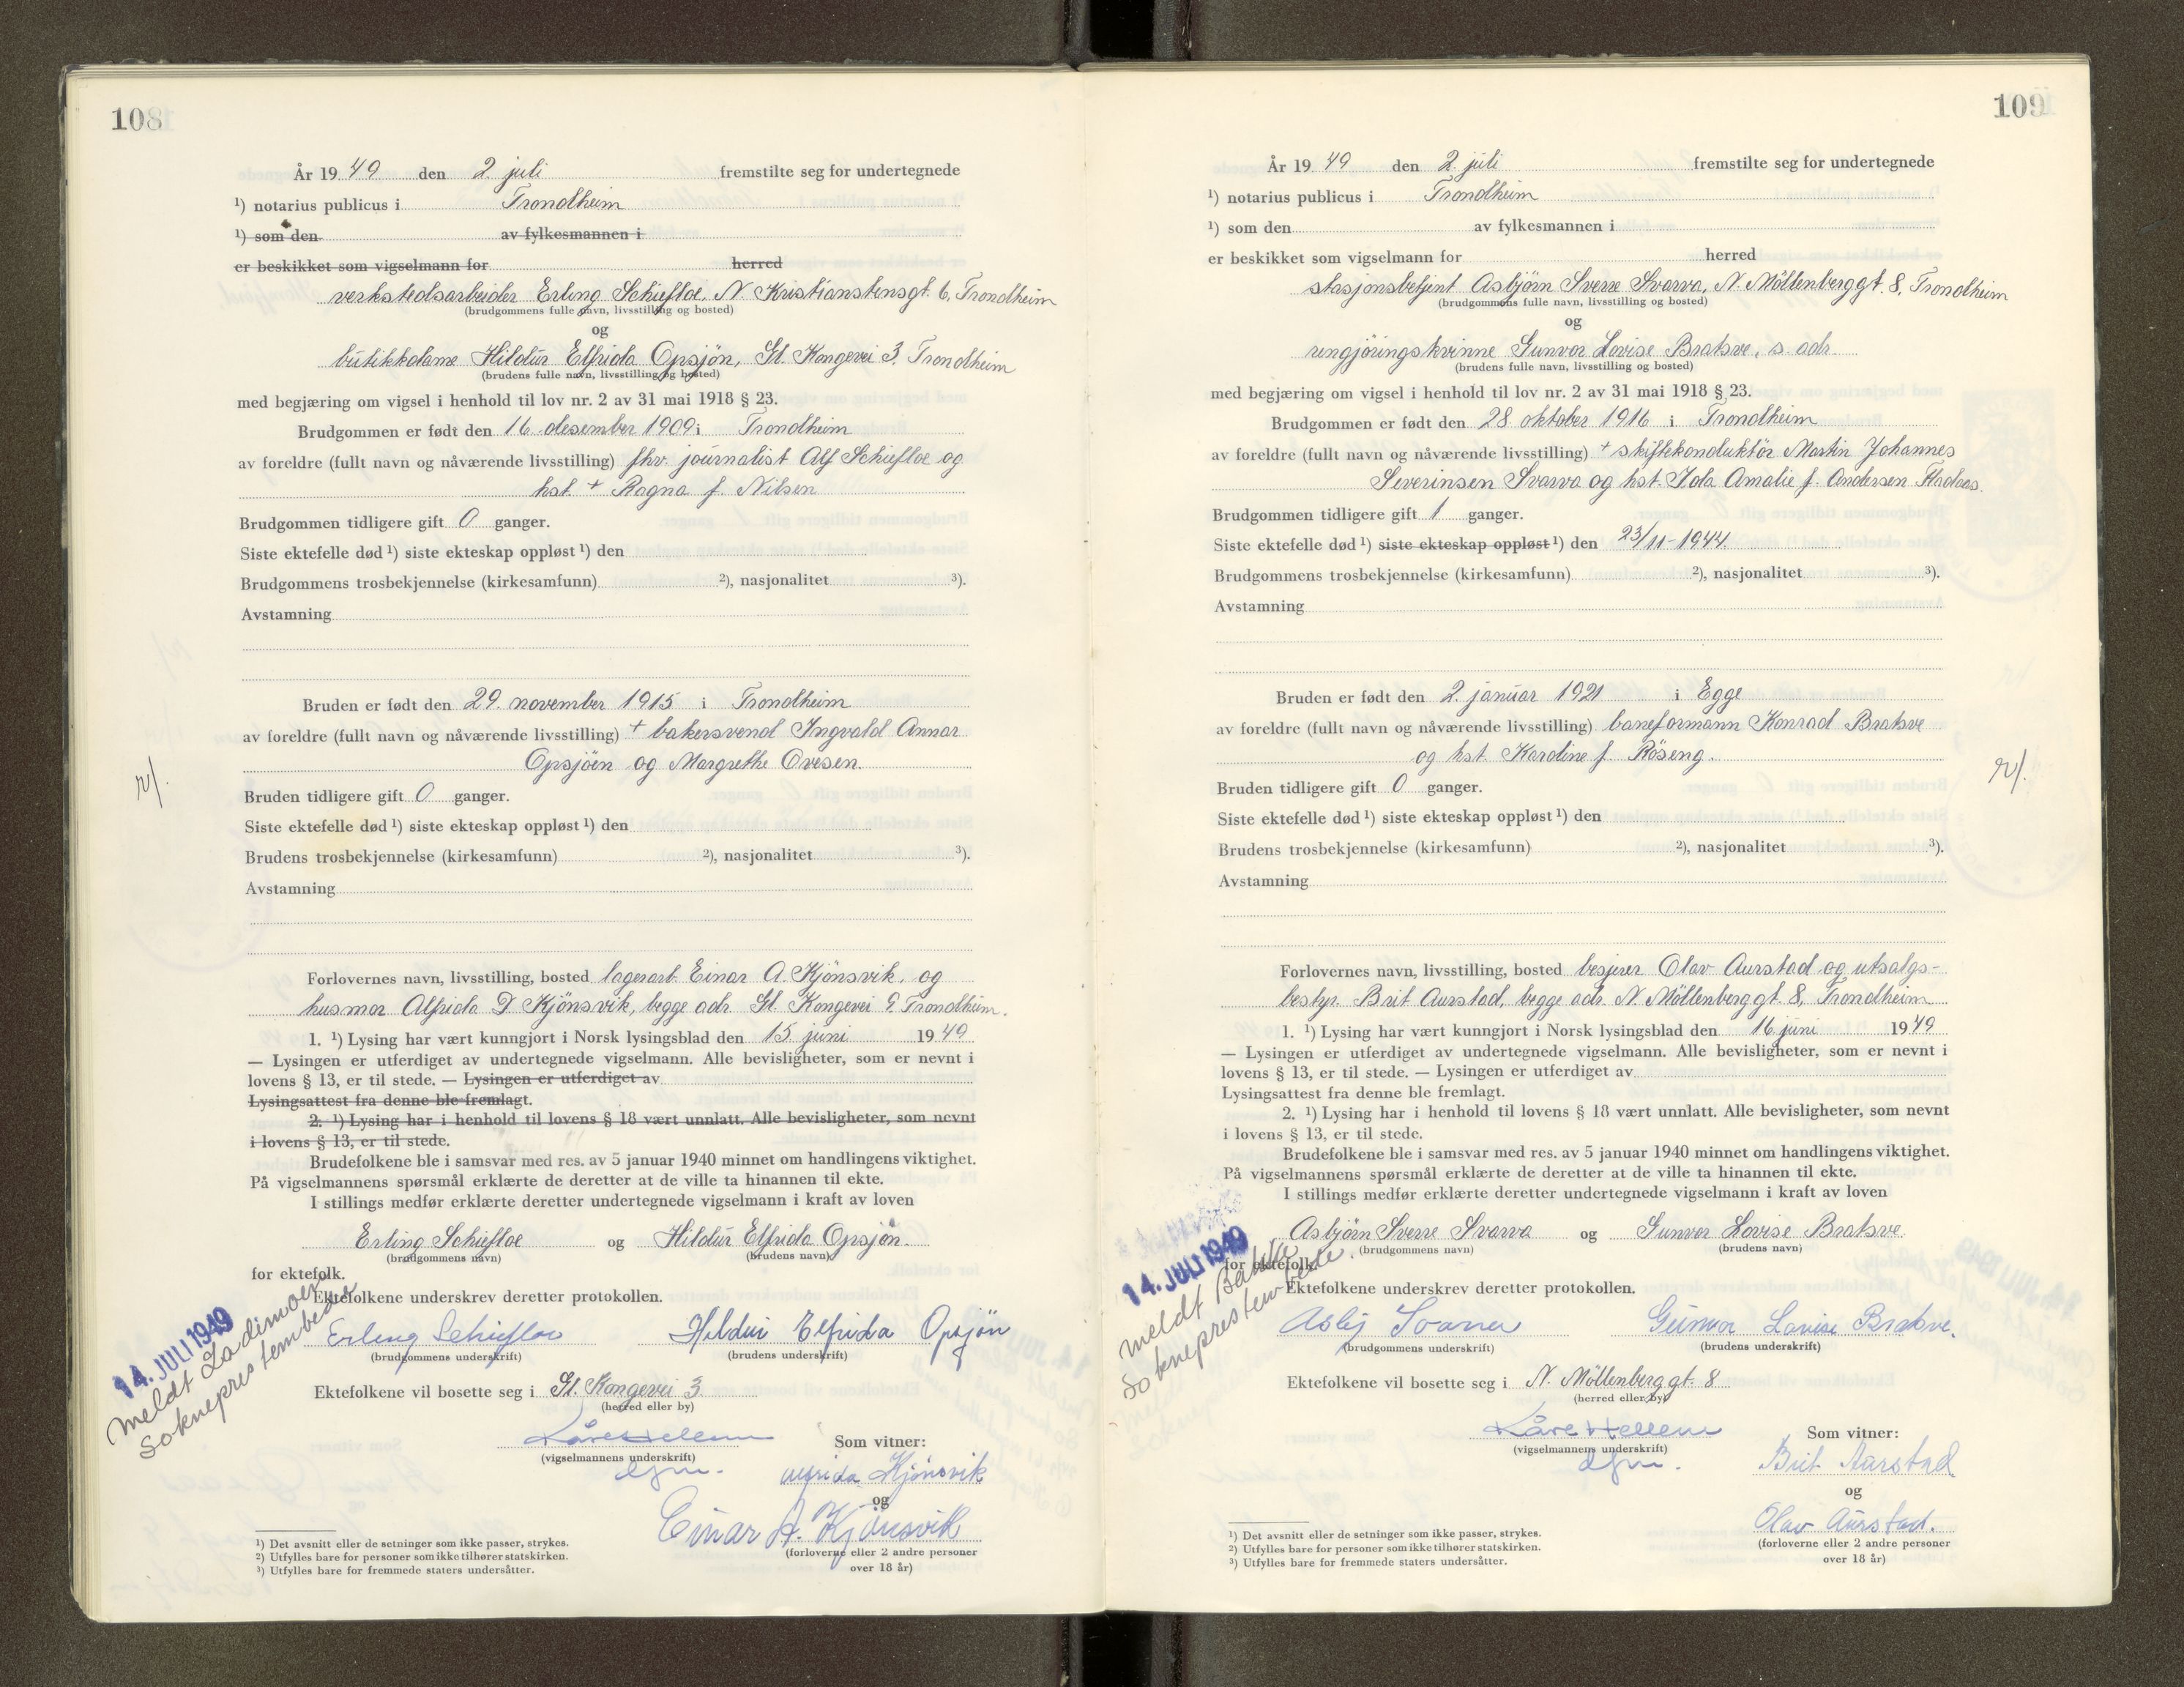 108
År 19 49 den 2 juli fremstilte seg for undertegnede
¹) notarius publicus i Trondheim
¹) som den av fylkesmannen i
er beskikket som vigselmann for herred
verkstedsarbeider Erling Schiefloe, N. Kristianstensgt. 6, Trondheim
(brudgommens fulle navn, livsstilling og bosted)
og
butikkdame Hildur Elfrida Opsjön, Gl. Kongevei 3, Trondheim
(brudens fulle navn, livsstilling og bosted)
med begjæring om vigsel i henhold til lov nr. 2 av 31 mai 1918 § 23.
Brudgommen er født den 16. desember 1909 i Trondheim
av foreldre (fullt navn og nåværende livsstilling) fhv. journalist Alf Schiefloe og
hst. + Ragna f. Nilsen
Brudgommen tidligere gift 0 ganger.
Siste ektefelle død ¹) siste ekteskap oppløst ¹) den
Brudgommens trosbekjennelse (kirkesamfunn) ²), nasjonalitet ³).
Avstamning
Bruden er født den 29. november 1915 i Trondheim
av foreldre (fullt navn og nåværende livsstilling) + bakersvend Ingvald Annar
Opsjöen og Margrethe Ovesen.
Bruden tidligere gift 0 ganger.
Siste ektefelle død ¹) siste ekteskap oppløst ¹) den
Brudens trosbekjennelse (kirkesamfunn) ²), nasjonalitet ³).
Avstamning
Forlovernes navn, livsstilling, bosted lagerarb. Einar A. Kjönsvik, og
husmor Alfrida D Kjönsvik, begge adr. Gl. Kongevei 9, Trondheim.
1. ¹) Lysing har vært kunngjort i Norsk lysingsblad den 15. juni 19 49
— Lysingen er utferdiget av undertegnede vigselmann. Alle bevisligheter, som er nevnt i
lovens § 13, er til stede. — Lysingen er utferdiget av
Lysingsattest fra denne ble fremlagt.
2. ¹) Lysing har i henhold til lovens § 18 vært unnlatt. Alle bevisligheter, som nevnt
i lovens § 13, er til stede.
Brudefolkene ble i samsvar med res. av 5 januar 1940 minnet om handlingens viktighet.
På vigselmannens spørsmål erklærte de deretter at de ville ta hinannen til ekte.
I stillings medfør erklærte deretter undertegnede vigselmann i kraft av loven
Erling Schiefloe og Hildur Elfrida Opsjön.
(brudgommens navn) (brudens navn)
for ektefolk.
Ektefolkene underskrev deretter protokollen.
14. JULI 1949
meldt Lademoen
Sokneprestembede
Erling Schiefloe Hildur Elfrida Opsjön
(brudgommens underskrift) (brudens underskrift)
Ektefolkene vil bosette seg i Gl. Kongevei 3
(herred eller by)
Kåre Hellem Som vitner:
(vigselmannens underskrift)
Alfrida Kjönsvik
og
Einar A. Kjönsvik
(forloverne eller 2 andre personer
over 18 år)
¹) Det avsnitt eller de setninger som ikke passer, strykes.
²) Utfylles bare for personer som ikke tilhører statskirken.
³) Utfylles bare for fremmede staters undersåtter.
109
År 19 49 den 2. juli fremstilte seg for undertegnede
¹) notarius publicus i Trondheim
¹) som den av fylkesmannen i
er beskikket som vigselmann for herred
stasjonsbetjent Asbjörn Sverre Svarva, N. Möllenberggt. 8, Trondheim
(brudgommens fulle navn, livsstilling og bosted)
og
rengjöringskvinne Gunvor Lovise Bratsve, s. adr.
(brudens fulle navn, livsstilling og bosted)
med begjæring om vigsel i henhold til lov nr. 2 av 31 mai 1918 § 23.
Brudgommen er født den 28. oktober 1916 i Trondheim
av foreldre (fullt navn og nåværende livsstilling) + skiftekonduktör Martin Johannes
Severinsen Svarva og hst. Ida Amalie f. Andersen
Brudgommen tidligere gift 1 ganger.
Siste ektefelle død ¹) siste ekteskap oppløst ¹) den 23/11-1944.
Brudgommens trosbekjennelse (kirkesamfunn) ²), nasjonalitet ³).
Avstamning
Bruden er født den 2. januar 1921 i Egge
av foreldre (fullt navn og nåværende livsstilling) baneformann Konrad Bratsve
og hst. Karoline f. Röseng.
Bruden tidligere gift 0 ganger.
Siste ektefelle død ¹) siste ekteskap oppløst ¹) den
Brudens trosbekjennelse (kirkesamfunn) ²), nasjonalitet ³).
Avstamning
Forlovernes navn, livsstilling, bosted Olav Aurstad og utsalgs-
bestyr. Brit Aurstad, begge adr. N. Möllenberggt. 8, Trondheim
1. ¹) Lysing har vært kunngjort i Norsk lysingsblad den 16. juni 19 49
— Lysingen er utferdiget av undertegnede vigselmann. Alle bevisligheter, som er nevnt i
lovens § 13, er til stede. — Lysingen er utferdiget av
Lysingsattest fra denne ble fremlagt.
2. ¹) Lysing har i henhold til lovens § 18 vært unnlatt. Alle bevisligheter, som nevnt
i lovens § 13, er til stede.
Brudefolkene ble i samsvar med res. av 5 januar 1940 minnet om handlingens viktighet.
På vigselmannens spørsmål erklærte de deretter at de ville ta hinannen til ekte.
I stillings medfør erklærte deretter undertegnede vigselmann i kraft av loven
Asbjörn Sverre Svarva og Gunvor Lovise Bratsve
(brudgommens navn) (brudens navn)
for ektefolk.
Ektefolkene underskrev deretter protokollen.
14. JULI 1949
meldt Bakke
Sokneprestembede.
Asbj Svarva Gunvor Lovise Bratsve.
(brudgommens underskrift) (brudens underskrift)
Ektefolkene vil bosette seg i N. Möllenberggt. 8
(herred eller by)
Kåre Hellem Som vitner:
(vigselmannens underskrift)
Brit Aurstad
og
Olav Aurstad.
(forloverne eller 2 andre personer
over 18 år)
¹) Det avsnitt eller de setninger som ikke passer, strykes.
²) Utfylles bare for personer som ikke tilhører statskirken.
³) Utfylles bare for fremmede staters undersåtter.